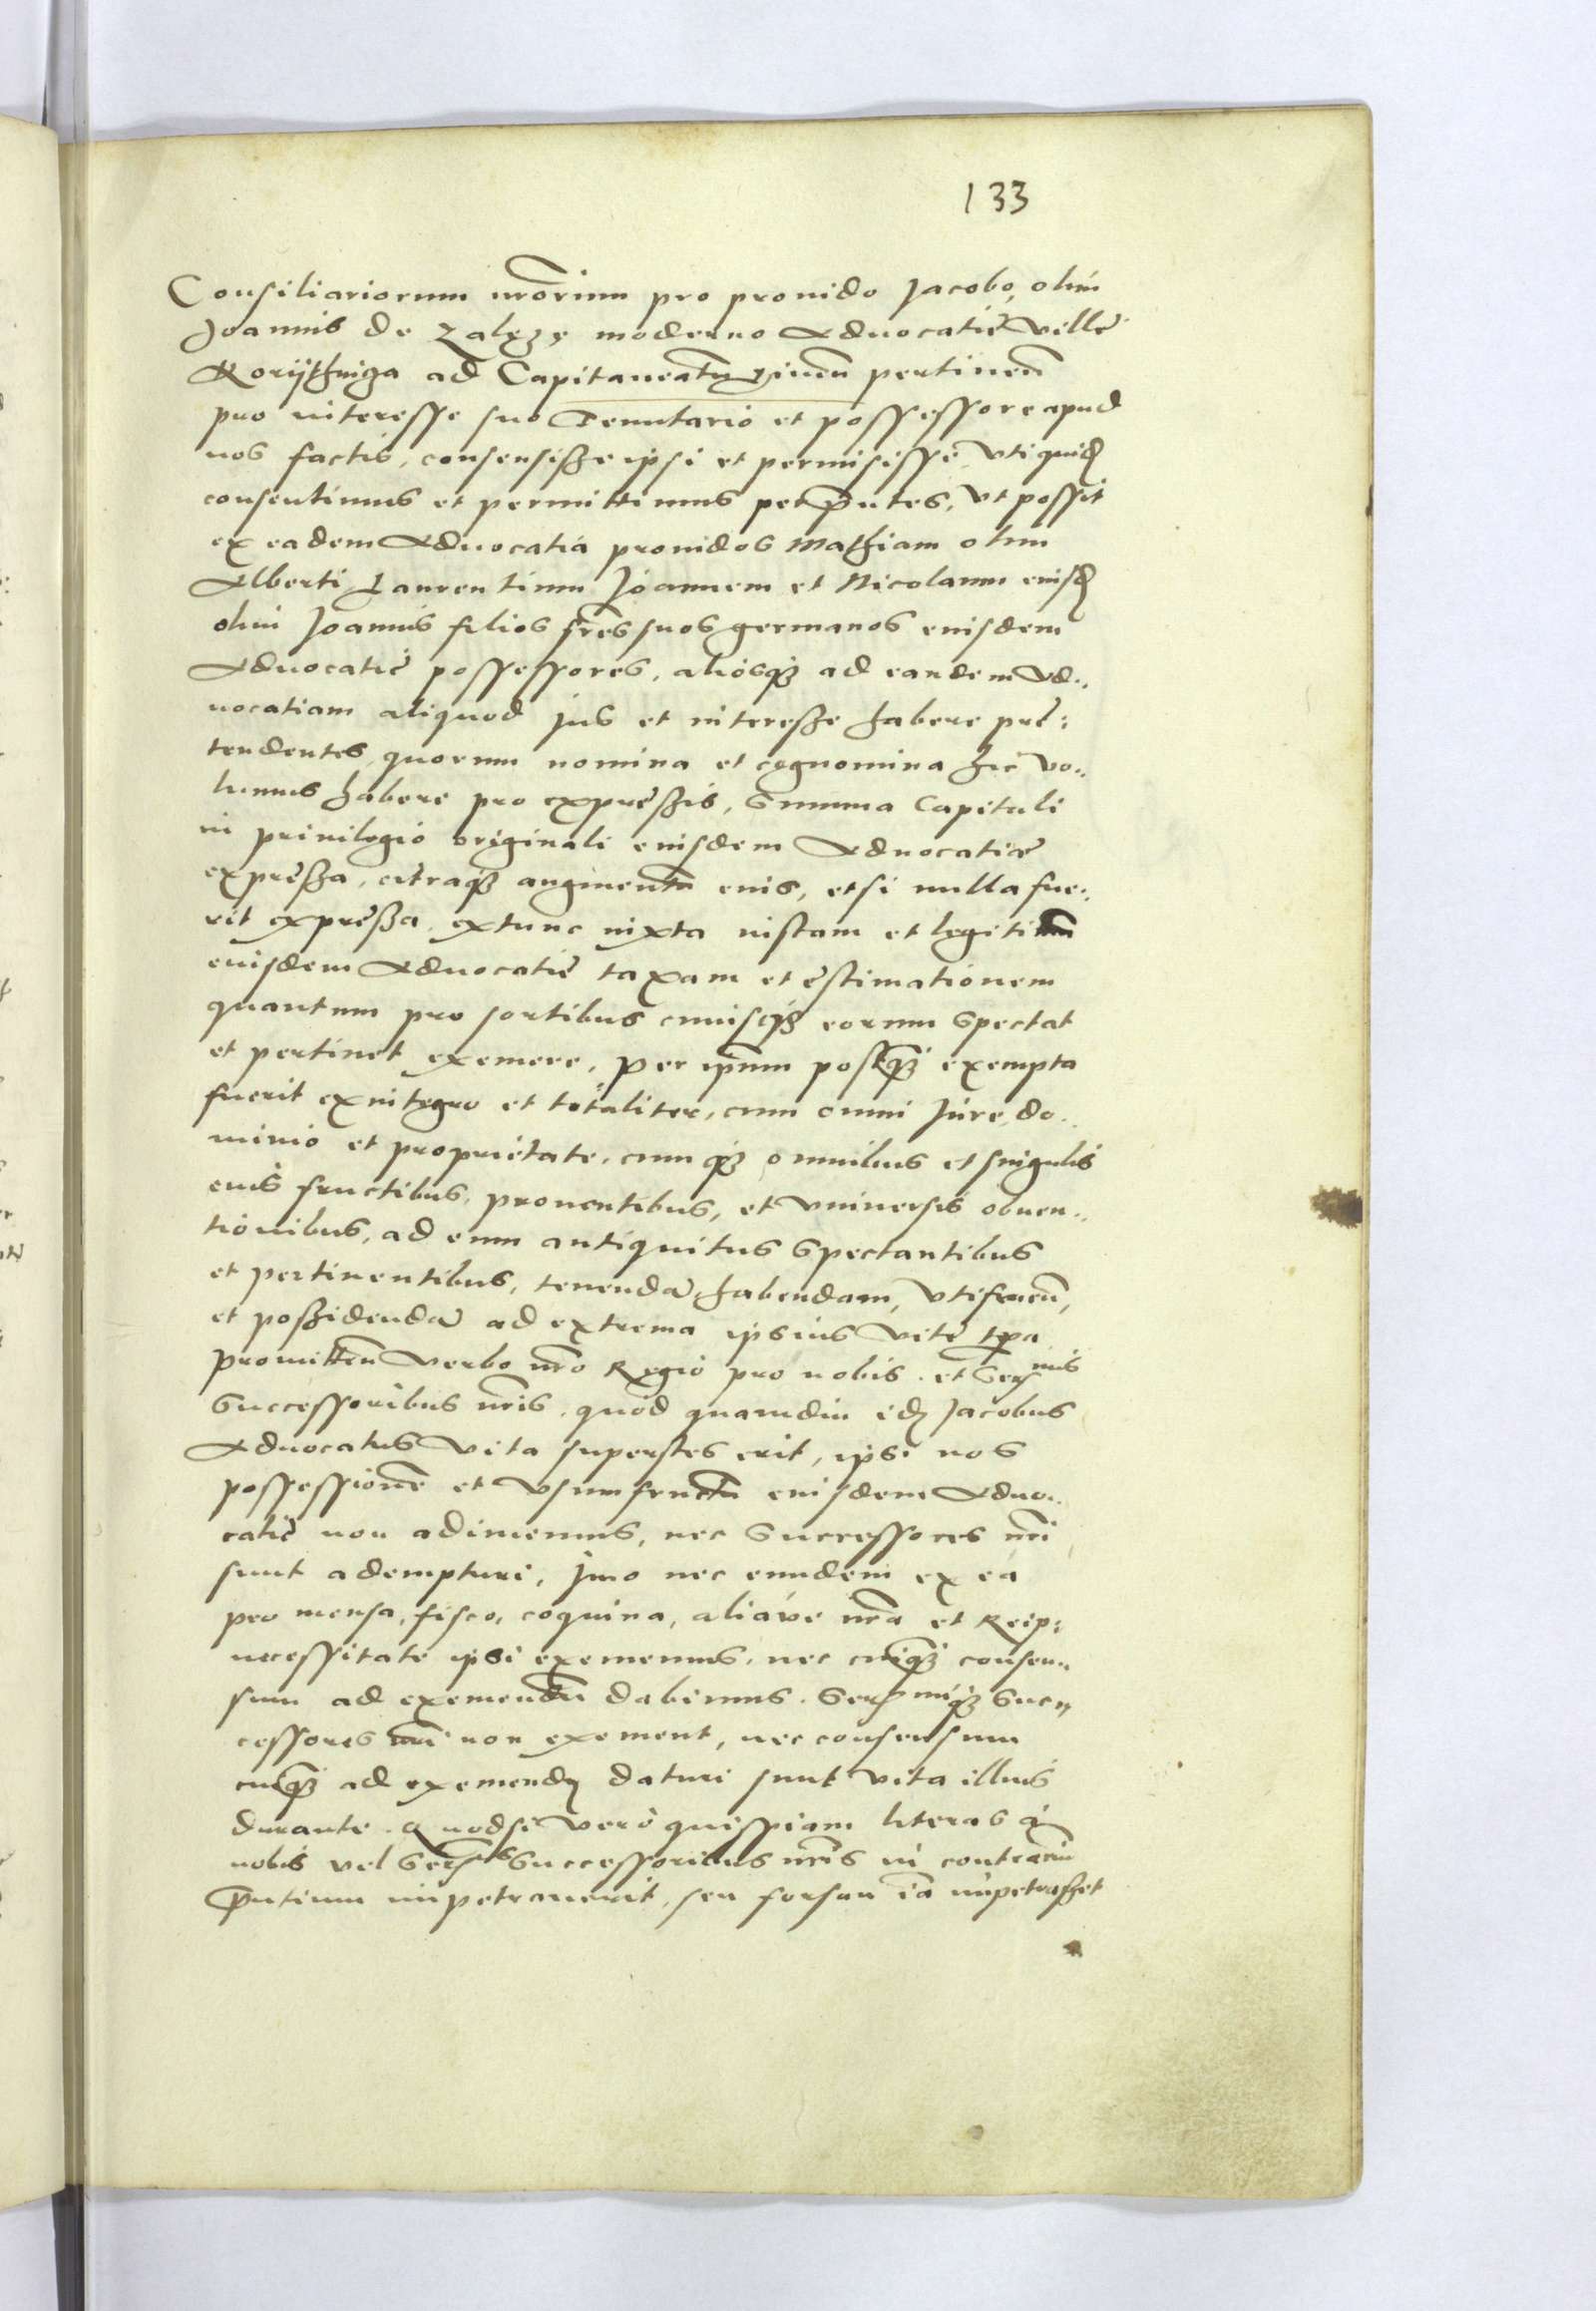 133
Consiliariorum nrorum pro provido Jacobo, olim
Joannis de Zalęzę moderno Advocatiæ villæ
Korijthniza ad Capitaneatu pertinen
pro interesse suo Tenutario et possessore apud
nos factis, consensisse ipsi et permisisse, Vti quid
consentimus et permittimus per pntes, Vt possit
ex eadem Advocatia providos Mathiam olim
Alberti Laurentium Joannem et Nicolaum eiusd
olim Joannis filios fres suos germanos eiusdem
Advocatiæ possessores, aliosqz ad eandem Ad..
vocatiam aliquod jus et interesse habere præ:
tendentes, quorum nomina et cognomina hic vo..
lumus habere pro expressis, Summa Capitali
in privilegio originali eiusdem Advocatiæ
expressa, citraqz augmentu eius, et si nulla fue:
rit expressa, extunc iuxta iustam et legitimã
eiusdem Advocatiæ taxam et æstimationem
quantum pro sortibus cuiuscqz eorum Spectat
et pertinet exemere, Per ipsum postqz exempta
fuerit ex integro et totaliter, cum omni Jure, do..
minio et proprietate, cum qz omnibus et singulis
eius fructibus, proventibus, et Vniversis obven..
tionibus, ad eum antiquitus Spectantibus
et pertinentibus, tenendã, habendam, Vtifruen,
et possidendã ad extrema ipsius Vitæ tpa
Promitten Verbo nro Regio pro nobis. et Sermis
Successoribus nris, quod quamdiu id Jacobus
Advocatus Vita superstes erit, ipsi nos
possessionẽ et Vsumfructũ eiusdem Advo..
catiæ non adimemus, nec Successores nri
sunt adempturi, Jmo nec eundem ex ea
pro mensa, fisco, coquina, aliave nra et Reip:
necessitate ipsi exememus, nec cuiqz consen..
sum ad exemendũ dabimus. Sermiqz Suc..
cessores nri non exement, nec consensum
cuiqz ad exemend daturi sunt Vita illius
durante. Quodsi Vero quispiam literas à
nobis vel Sermis Successoribus nris in contrariũ
pntium impetraverit, seu forsan iã impetrasset